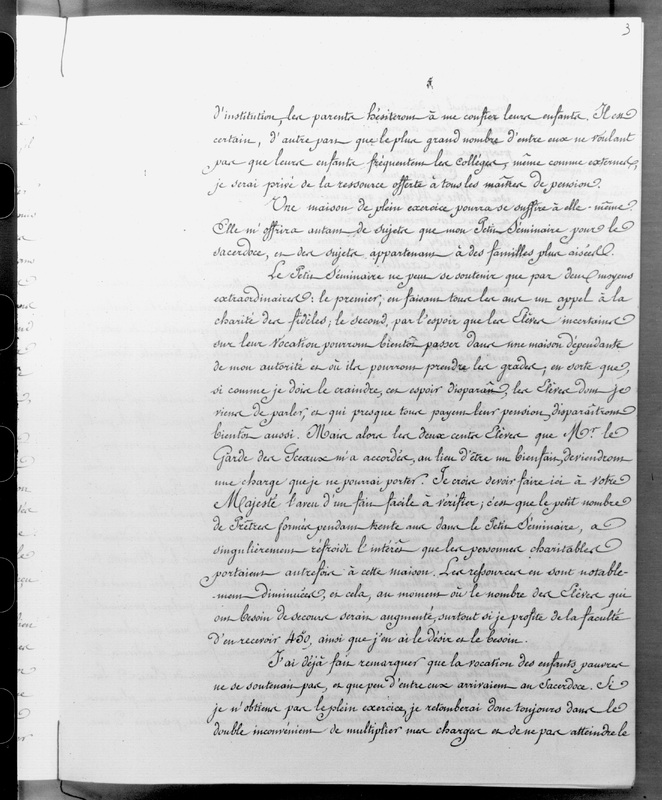 3
d'institution, les parents hésiteront à me confier leurs enfants. Il est
certain, d'autre part que le plus grand nombre d'entre eux ne voulant
pas que leurs enfants fréquentent les Collèges, même comme externes,
je serai privé de la ressource offerte à tous les maîtres de pension.
Une maison de plein exercice pourra se suffire à elle-même
Elle m'offrira autant de sujets que mon Petit Séminaire pour le
sacerdoce, et des sujets appartenant à des familles plus aisées.
Le Petit Séminaire ne peut se soutenir que par deux moyens
extraordinaires: le premier, en faisant tous les ans un appel à la
charité des fidèles; le second, par l'espoir que les Elèves incertains
sur leur vocation pourront bientôt passer dans une maison dépendante
de mon autorité et où ils pourront prendre les grades, en sorte que,
si comme je dois le craindre, cet espoir disparaît, les Elèves dont je
viens de parler, et qui presque tous payent leur pension, disparaîtront
bientôt aussi. Mais alors les deux cents Elèves que Mr. le
Garde des Sceaux m'a accordés, au lieu d'être un bienfait, deviendront
une charge que je ne pourrai porter. Je crois devoir faire ici à Votre
Majesté l'aveu d'un fait facile à vérifier; c'est que le petit nombre
de Prêtres formés pendant trente ans dans le Petit Séminaire, a
singulièrement refroidi l'intérêt que les personnes charitables
portaient autrefois à cette maison. Les ressources en sont notable-
-ment diminuées, et cela, au moment où le nombre des Elèves qui
ont besoin de secours serait augmenté, surtout si je profite de la faculté
d'en recevoir 450, ainsi que j'en ai le désir et le besoin.
J'ai déjà fait remarquer que la vocation des enfants pauvres
ne se soutenait pas, et que peu d'entre eux arrivaient au Sacerdoce. Si
je n'obtiens pas le plein exercice, je retomberai donc toujours dans le
double inconvénient de multiplier mes charges et de ne pas atteindre le